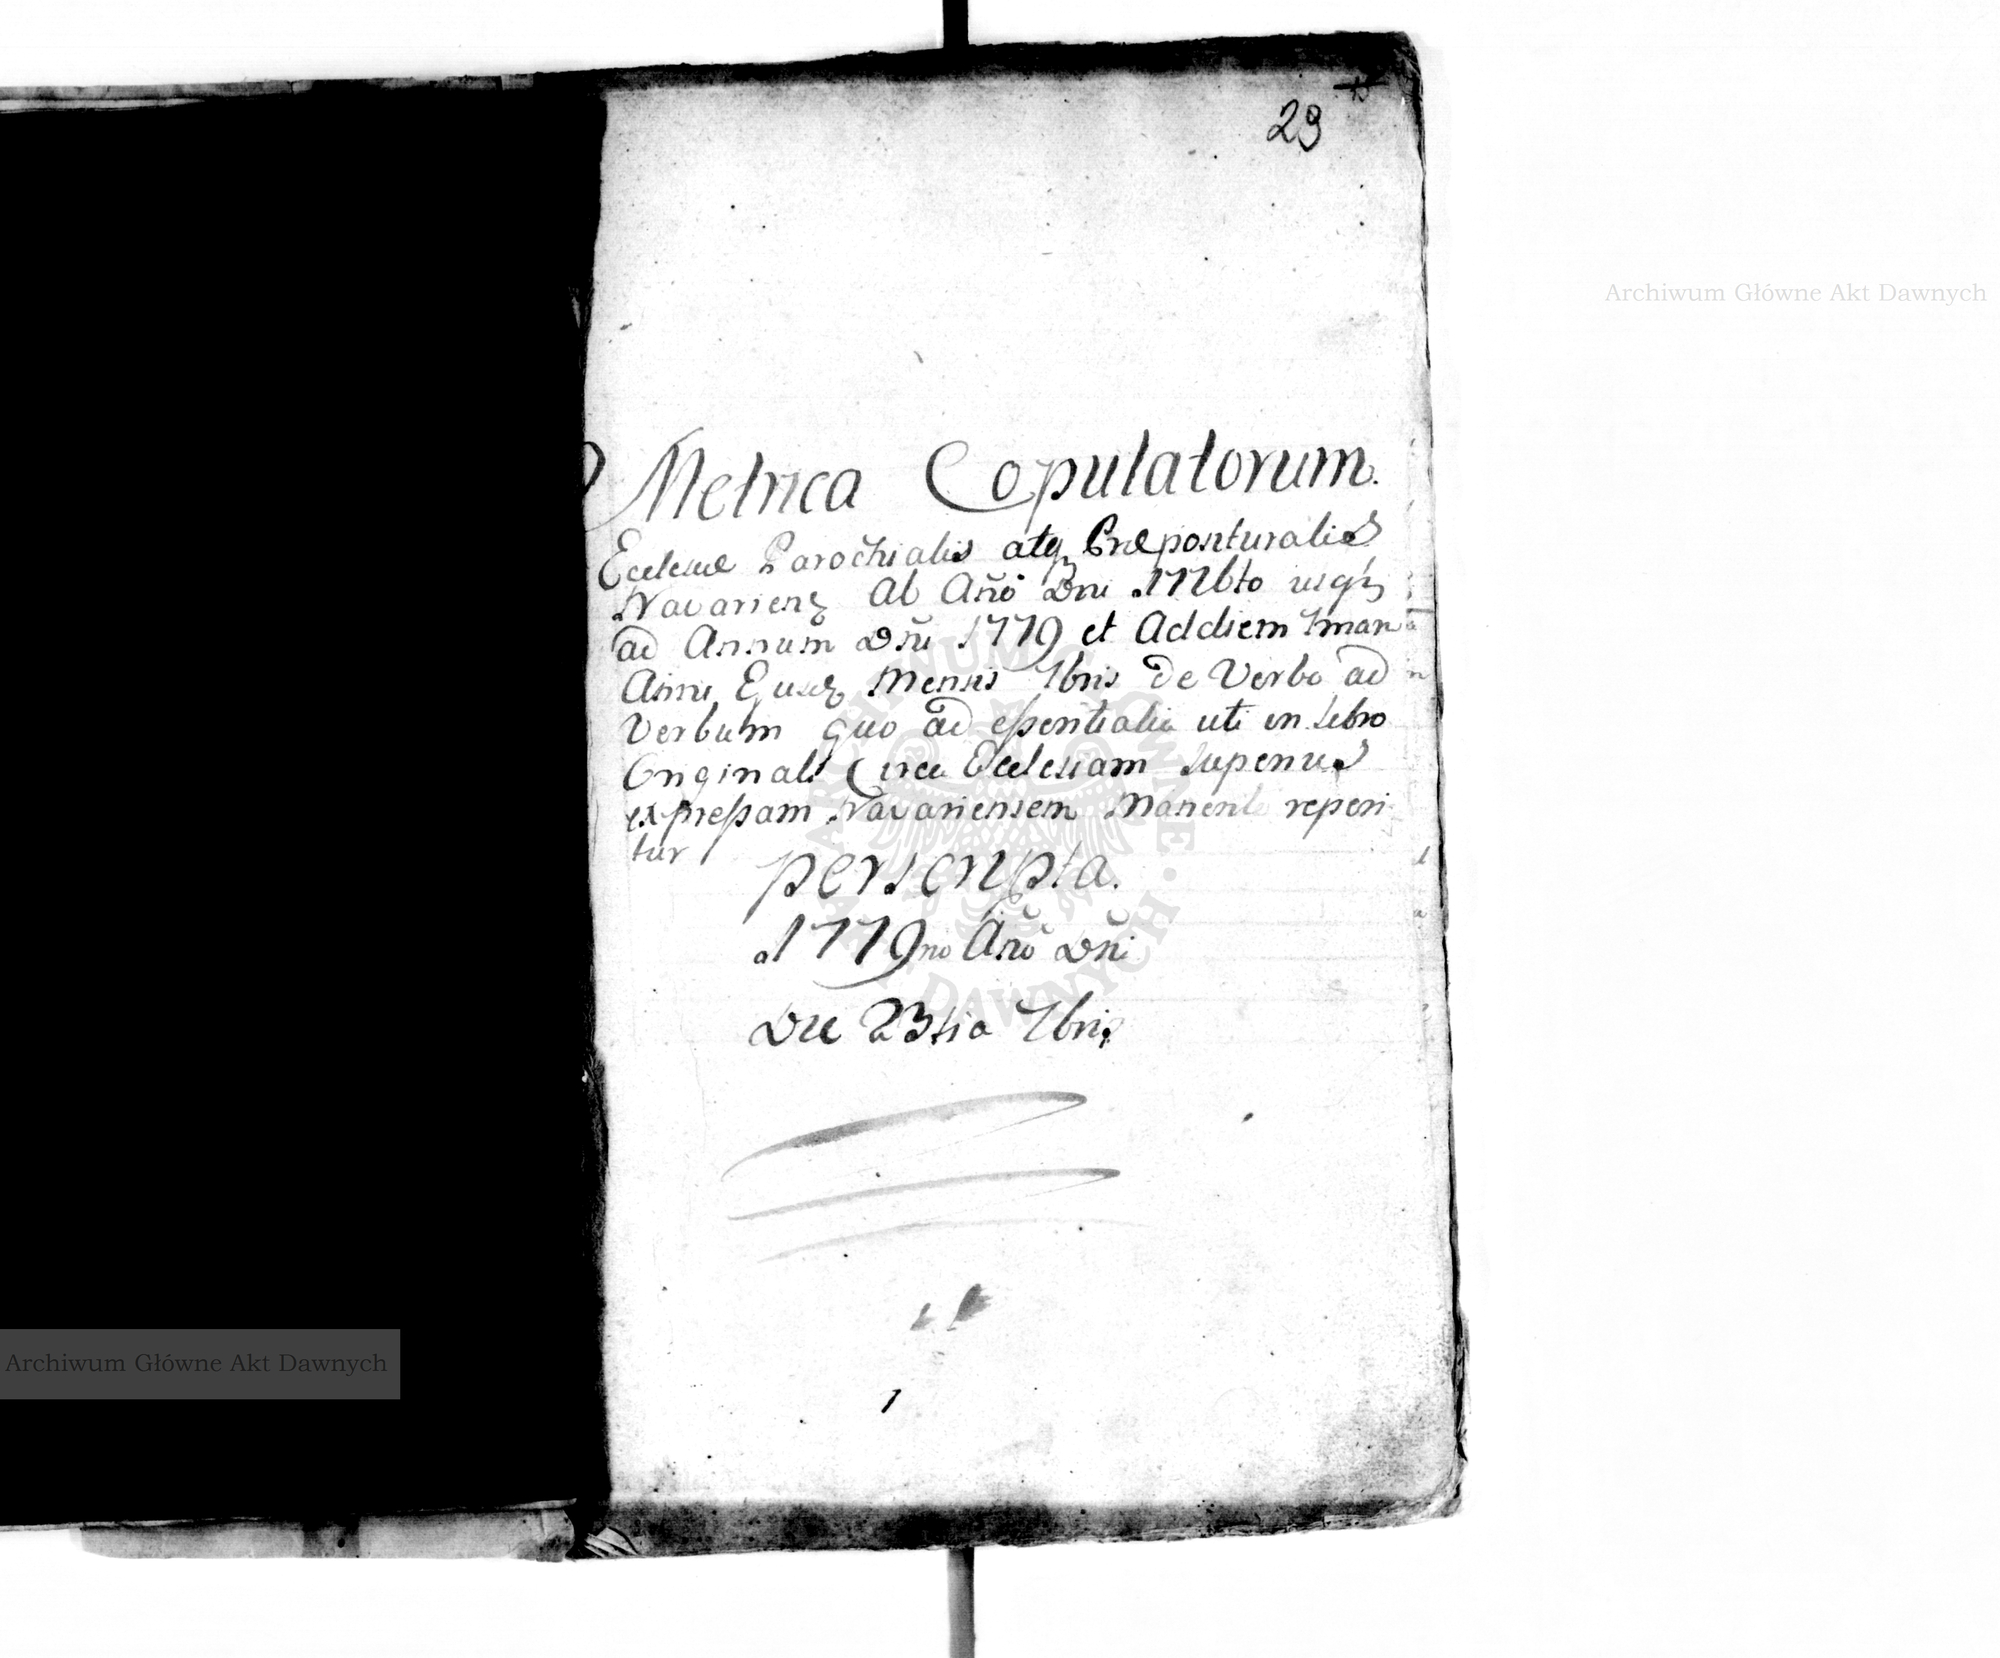 29
Archiwum Główne Akt Dawnych
Metrica Copulatorum.
Ecclesiæ Parochialis atq Præposituralis
Navariens Ab Añó Dni 1776to usq
ad Annum Dñi 1779 et Addiem 1mam
Anni Ejusd Mensis 7bris de Verbo ad
Verbum quo ad essentialia uti in Libro
Originali Circa Ecclesiam superius
expressam Navariensem Manente reperi-
tur
perscripta.
1779no Año Dñi
Die 23tia 7bris
ARCHIWUM GŁÓWNE AKT DAWNYCH
Archiwum Główne Akt Dawnych